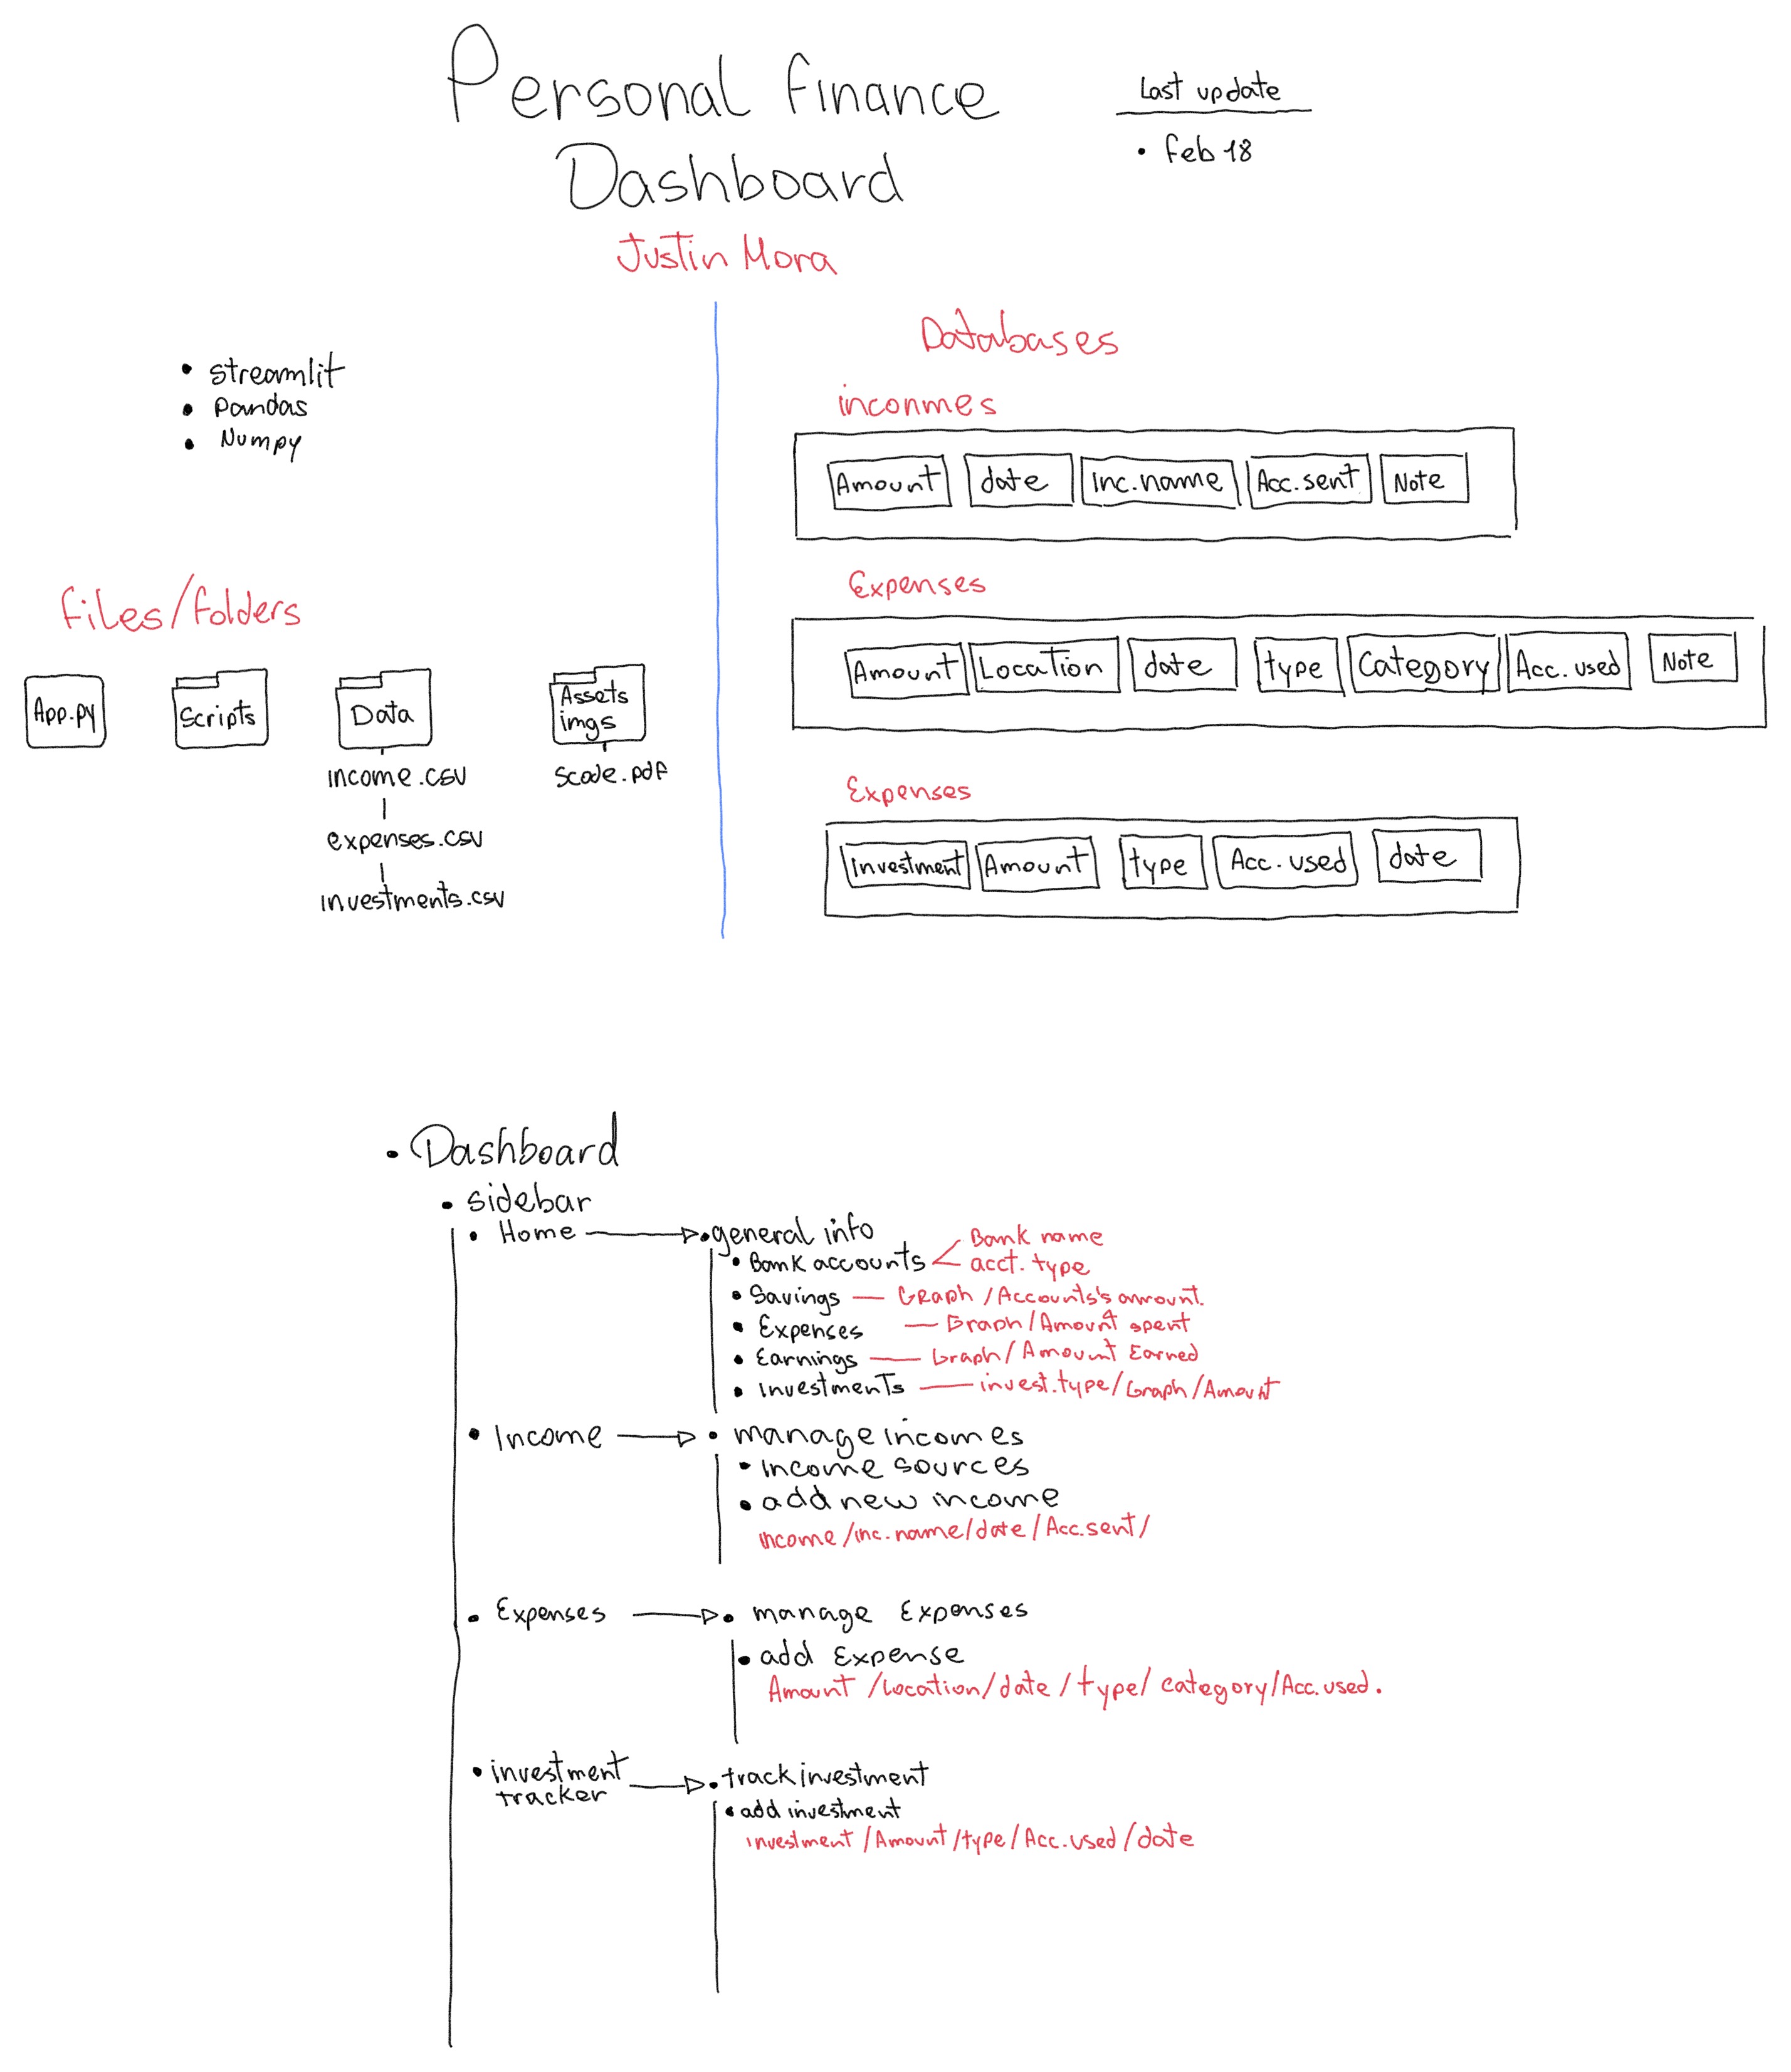 Personal Finance
Dashboard
Last update
• Feb 18
Justin Mora
• Streamlit
• Pandas
• Numpy
Files/Folders
App.py
Scripts
Data
income.csv
expenses.csv
investments.csv
Assets
imgs
Scode.pdf
Databases
inconmes
Amount date Inc.name Acc.sent Note
Expenses
Amount Location date type Category Acc.used Note
Expenses
Investment Amount type Acc.used date
• Dashboard
• sidebar
• Home
• general info
• Bank accounts
Bank name
acct. type
• Savings — Graph /Accounts's amount.
• Expenses — Graph/Amount spent
• Earnings — Graph/Amount Earned
• Investments — invest.type/Graph/Amount
• Income
• manage incomes
• income sources
• add new income
income/inc.name/date/Acc.sent/
• Expenses
• manage Expenses
• add Expense
Amount /Location/date/type/category/Acc.used.
• investment
tracker
• track investment
• add investment
investment/Amount/type/Acc.used/date